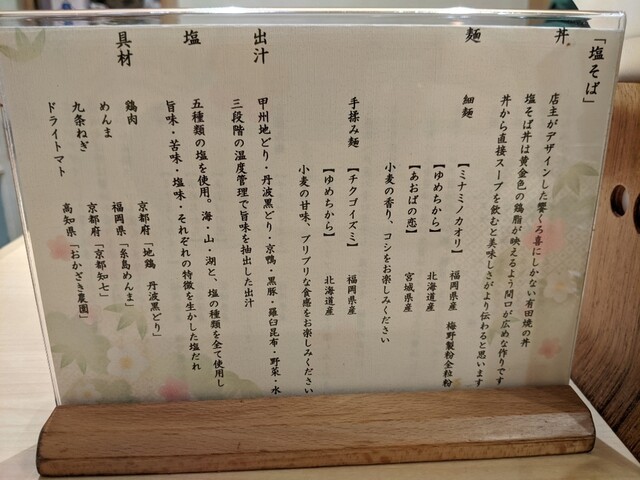 「塩そば」
丼
店主がデザインした饗くろ喜にしかない有田焼の丼
塩そば丼は黄金色の鶏脂が映えるよう間口が広めな作りです
丼から直接スープを飲むと美味しさがより伝わると思います
麺
細麺
【ミナミノカオリ】 福岡県産 梅野製粉全粒粉
【ゆめちから】 北海道産
【あおばの恋】 宮城県産
小麦の香り、コシをお楽しみください
手揉み麺
【チクゴイズミ】 福岡県産
【ゆめちから】 北海道産
小麦の甘味、プリプリな食感をお楽しみください
出汁
甲州地どり・丹波黒どり・京鴨・黒豚・羅臼昆布・野菜・水
三段階の温度管理で旨味を抽出した出汁
塩
五種類の塩を使用。海・山・湖と、塩の種類を全て使用し
旨味・苦味・塩味・それぞれの特徴を生かした塩だれ
具材
鶏肉 京都府「地鶏 丹波黒どり」
めんま 福岡県「糸島めんま」
九条ねぎ 京都府「京都知七」
ドライトマト 高知県「おかざき農園」